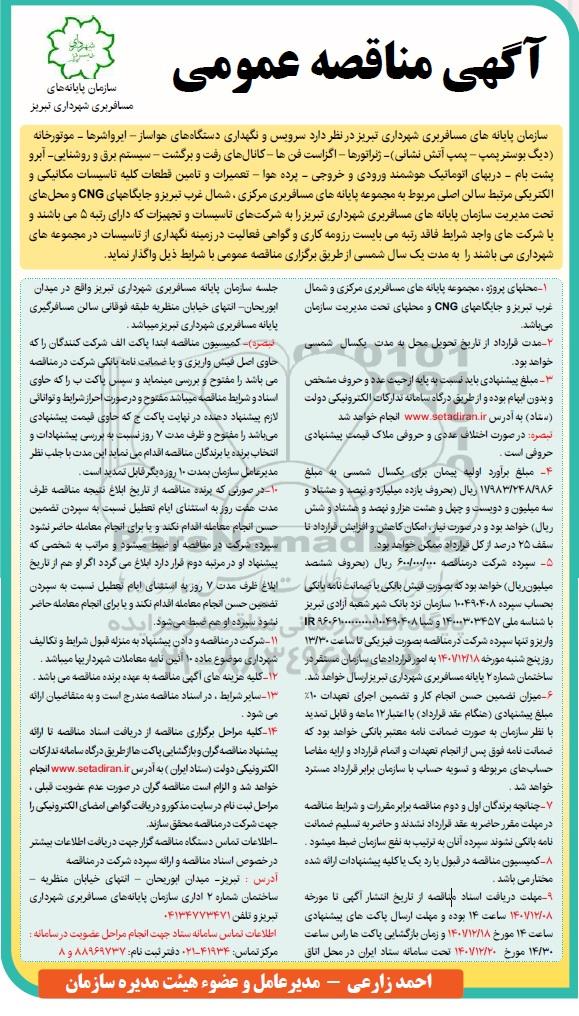 آگهی مناقصه عمومی
شهرداری تبریز
سازمان پایانه‌های
مسافربری شهرداری تبریز
سازمان پایانه های مسافربری شهرداری تبریز در نظر دارد سرویس و نگهداری دستگاه‌های هواساز – ایرواشرها – موتورخانه
(دیگ بوستر پمپ – پمپ آتش نشانی)- ژنراتورها – اگزاست فن ها – کانال‌های رفت و برگشت – سیستم برق و روشنایی- آبرو
پشت بام – دربهای اتوماتیک هوشمند ورودی و خروجی – پرده هوا – تعمیرات و تامین قطعات کلیه تاسیسات مکانیکی و
الکتریکی مرتبط سالن اصلی مربوط به مجموعه پایانه های مسافربری مرکزی ، شمال غرب تبریز و جایگاههای CNG و محل‌های
تحت مدیریت سازمان پایانه های مسافربری شهرداری تبریز را به شرکت‌های تاسیسات و تجهیزات که دارای رتبه ۵ می باشند و
یا شرکت های واجد شرایط فاقد رتبه می بایست رزومه کاری و گواهی فعالیت در زمینه نگهداری از تاسیسات در مجموعه های
شهرداری می باشند را به مدت یک سال شمسی از طریق برگزاری مناقصه عمومی با شرایط ذیل واگذار نماید.
۱-محلهای پروژه ، مجموعه پایانه های مسافربری مرکزی و شمال
غرب تبریز و جایگاههای CNG و محلهای تحت مدیریت سازمان
می‌باشد.
۲-مدت قرارداد از تاریخ تحویل محل به مدت یکسال شمسی
خواهد بود.
۳-مبلغ پیشنهادی باید نسبت به پایه از حیث عدد و حروف مشخص
و بدون ابهام بوده و از طریق درگاه سامانه تدارکات الکترونیکی دولت
(ستاد) به آدرس www.setadiran.ir انجام خواهد شد
تبصره: در صورت اختلاف عددی و حروفی ملاک قیمت پیشنهادی
حروفی است .
۴- مبلغ برآورد اولیه پیمان برای یکسال شمسی به مبلغ
۱۱/۹۸۳/۲۴۸/۹۸۶ ریال (بحروف یازده میلیارد و نهصد و هشتاد و
سه میلیون و دویست و چهل و هشت هزار و نهصد و هشتاد و شش
ریال) خواهد بود و در صورت نیاز، امکان کاهش و افزایش قرارداد تا
سقف ۲۵ درصد از کل قرارداد ممکن خواهد بود.
۵- سپرده شرکت درمناقصه ۶۰۰/۰۰۰/۰۰۰ ریال (بحروف ششصد
میلیون ریال) خواهد بود که بصورت فیش بانکی یا ضمانت نامه بانکی
بحساب سپرده ۱۰۰۴۹۰۴۰۸ سازمان نزد بانک شهر شعبه آزادی تبریز
با شناسه ملی ۱۴۰۰۰۳۰۳۴۵۷ و شبا
واریز و تنها سپرده شرکت در مناقصه بصورت فیزیکی تا ساعت ۱۳/۳۰
روز پنج شنبه مورخه ۱۴۰۱/۱۲/۱۸ به امور قراردادهای سازمان مستقر در
ساختمان شماره ۲ پایانه مسافربری شهرداری تبریز ارسال خواهد شد.
۶-میزان تضمین حسن انجام کار و تضمین اجرای تعهدات ۱۰٪
مبلغ پیشنهادی (هنگام عقد قرارداد) با اعتبار ۱۲ ماهه و قابل تمدید
با نظر سازمان به صورت ضمانت نامه معتبر بانکی خواهد بود که
ضمانت نامه فوق پس از انجام تعهدات و اتمام قرارداد و ارایه مفاصا
حساب‌های مربوطه و تسویه حساب با سازمان برابر قرارداد مسترد
خواهد شد .
۷-چنانچه برندگان اول و دوم مناقصه برابر مقررات و شرایط مناقصه
در مهلت مقرر حاضر به عقد قرارداد نشدند و حاضر به تسلیم ضمانت
نامه بانکی نشوند سپرده آنان به ترتیب به نفع سازمان ضبط میشود .
۸-کمیسیون مناقصه در قبول یا رد یک یا کلیه پیشنهادات ارائه شده
مختار می باشد .
۹-مهلت دریافت اسناد مناقصه از تاریخ انتشار آگهی تا مورخه
۱۴۰۱/۱۲/۰۸ ساعت ۱۴ بوده و مهلت ارسال پاکت های پیشنهادی
ساعت ۱۴ مورخ ۱۴۰۱/۱۲/۱۸ و زمان بازگشایی پاکت ها راس ساعت
۱۴/۳۰ مورخ ۱۴۰۱/۱۲/۲۰ تحت سامانه ستاد ایران در محل اتاق
جلسه سازمان پایانه مسافربری شهرداری تبریز واقع در میدان
ابوریحان- انتهای خیابان منظریه طبقه فوقانی سالن مسافرگیری
پایانه مسافربری شهرداری تبریز میباشد .
تبصره)- کمیسیون مناقصه ابتدا پاکت الف شرکت کنندگان را که
حاوی اصل فیش واریزی و یا ضمانت نامه بانکی شرکت در مناقصه
می باشد را مفتوح و بررسی مینماید و سپس پاکت ب را که حاوی
اسناد و شرایط مناقصه میباشد مفتوح و در صورت احراز شرایط و توانائی
لازم پیشنهاد دهنده در نهایت پاکت ج که حاوی قیمت پیشنهادی
می‌باشد را مفتوح و ظرف مدت ۷ روز نسبت به بررسی پیشنهادات و
انتخاب برنده یا برندگان مناقصه اقدام می نماید این مدت با جلب نظر
مدیرعامل سازمان بمدت ۱۰ روز دیگر قابل تمدید است .
۱۰-در صورتی که برنده مناقصه از تاریخ ابلاغ نتیجه مناقصه ظرف
مدت هفت روز به استثنای ایام تعطیل نسبت به سپردن تضمین
حسن انجام معامله اقدام نکند و یا برای انجام معامله حاضر نشود
سپرده شرکت در مناقصه او ضبط میشود و مراتب به شخصی که
پیشنهاد او در مرتبه دوم قرار دارد ابلاغ می گردد اگر او هم از تاریخ
ابلاغ ظرف مدت ۷ روز به استثنای ایام تعطیل نسبت به سپردن
تضمین حسن انجام معامله اقدام نکند و یا برای انجام معامله حاضر
نشود سپرده او هم ضبط می‌شود.
۱۱-شرکت در مناقصه و دادن پیشنهاد به منزله قبول شرایط و تکالیف
شهرداری موضوع ماده ۱۰ آئین نامه معاملات شهرداریها میباشد .
۱۲-کلیه هزینه های آگهی مناقصه به عهده برنده مناقصه می باشد .
۱۳-سایر شرایط ، در اسناد مناقصه مندرج است و به متقاضیان ارائه
می شود .
۱۴-کلیه مراحل برگزاری مناقصه از دریافت اسناد مناقصه تا ارائه
پیشنهاد مناقصه گران و بازگشایی پاکت ها از طریق درگاه سامانه تدارکات
الکترونیکی دولت (ستاد ایران ) به آدرس www.setadiran.ir انجام
خواهد شد و الزام است مناقصه گران در صورت عدم عضویت قبلی ،
مراحل ثبت نام در سایت مذکور و دریافت گواهی امضای الکترونیکی را
جهت شرکت در مناقصه محقق سازند.
-اطلاعات تماس دستگاه مناقصه گزار جهت دریافت اطلاعات بیشتر
در خصوص اسناد مناقصه و ارائه سپرده شرکت در مناقصه
آدرس : تبریز- میدان ابوریحان – انتهای خیابان منظریه –
ساختمان شماره ۲ اداری سازمان پایانه‌های مسافربری شهرداری
تبریز و تلفن ۰۴۱۳۴۷۷۳۴۷۱
اطلاعات تماس سامانه ستاد جهت انجام مراحل عضویت در سامانه :
مرکز تماس: ۴۱۹۳۴-۰۲۱ دفتر ثبت نام: ۸۸۹۶۹۷۳۷ و ۸
احمد زارعی – مدیرعامل و عضوء هیئت مدیره سازمان